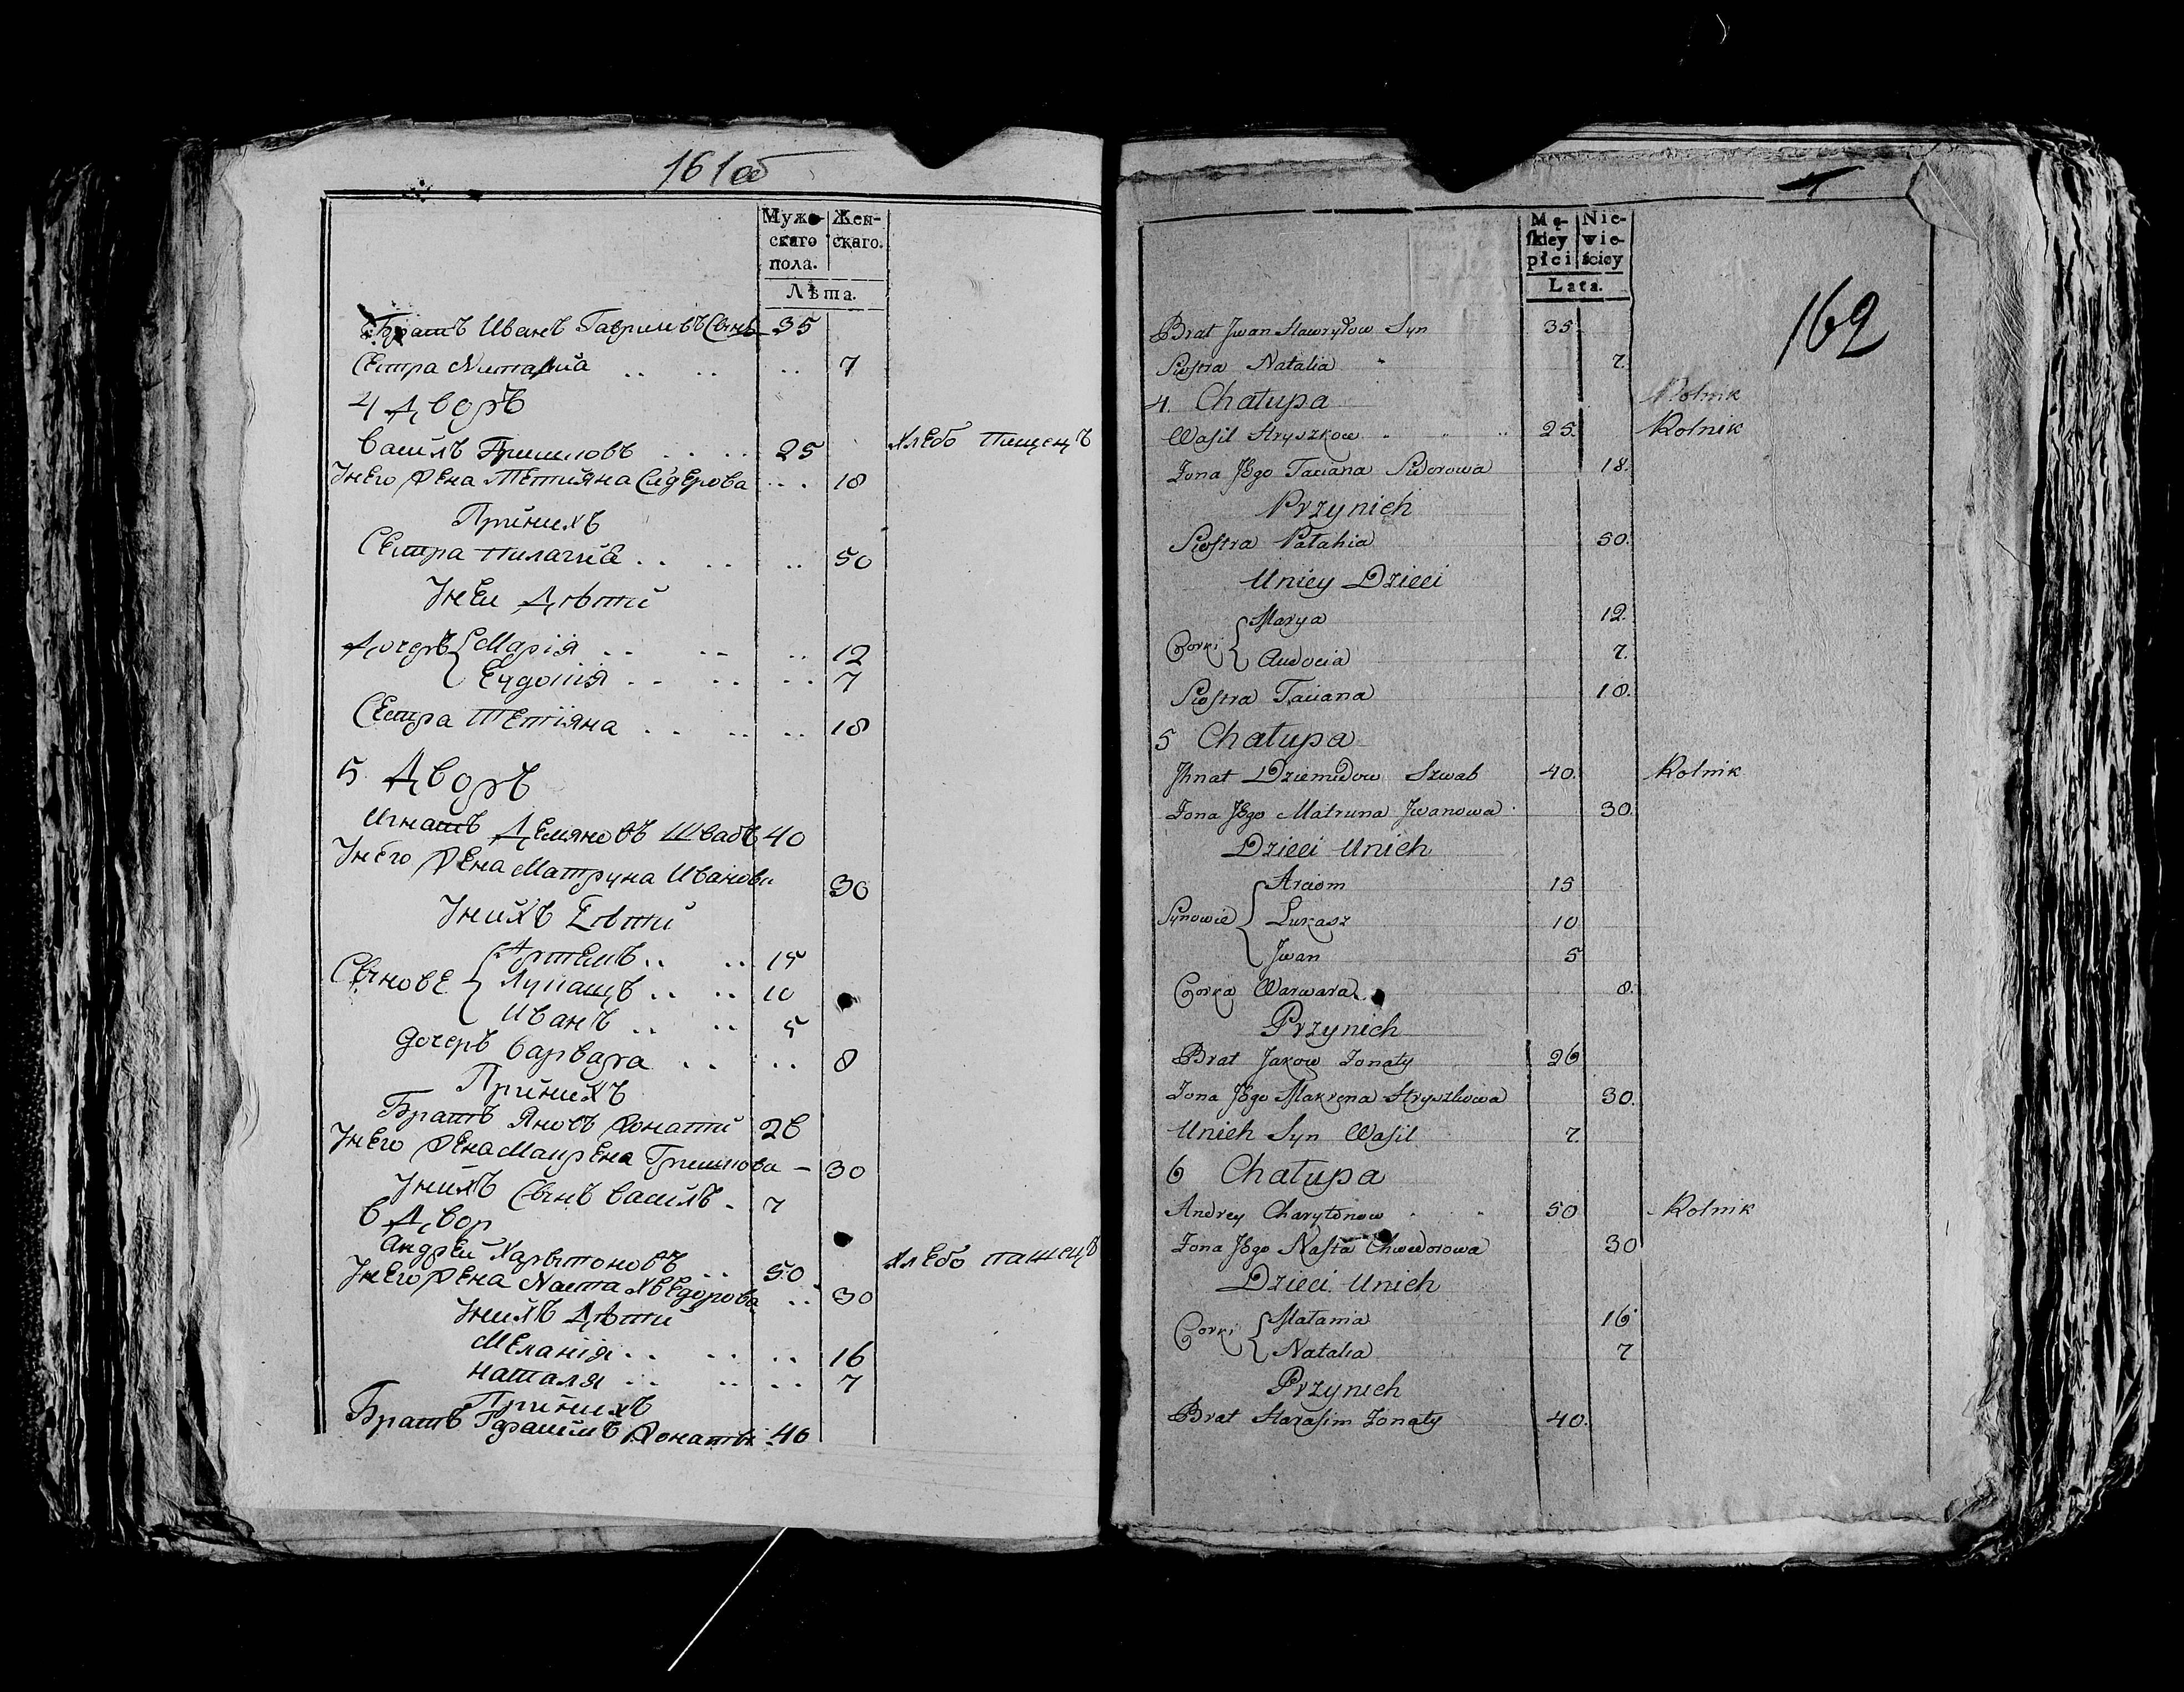 161об
Мужескаго пола. Женскаго.
Лѣта.
Братъ Иванъ Гавриловъ Сынъ 35
Сестра Наталия 7
4 Дворъ
Василъ Гришковъ 25 Хлебо пашецъ
Унего Жена Тетияна Сидерова 18
Принихъ
Сестра пилагия 50
Уней Дѣти
Дочеръ Мария 12
Еудокия 7
Сестра Тетияна 18
5 Дворъ
Игнатъ Демяновъ Швабъ 40
Унего Жена Матруна Иванова 30
Унихъ Дѣти
Сынове Артемъ 15
Лукашъ 10
Иванъ 5
дочеръ варвара 8
Принихъ
Братъ Яковъ Жонати 26
Унего Жена Макрена Гришкова 30
Унихъ Сынъ василъ 7
6 Двор
Андрей Харытоновъ 50 Хлебо пашецъ
Унего Жена Наста Хведорова 30
Унихъ Дѣти
Мелания 16
наталя 7
Принихъ
Братъ Гарасимъ Жонаты 40
162
Męskiey płci Niewieściey
Lata.
Brat Jwan Hawryłow Syn 35
Siostra Natalia 7.
4. Chałupa Rolnik
Wasil Hryszkow 25. Rolnik
Żona Jego Taciana Sidorowa 18.
Przynich
Siostra Pałahia 50.
Uniey Dzieci
Corki Marya 12.
Audocia 7.
Siostra Taciana 18.
5 Chałupa
Jhnat Dziemidow Szwab 40. Rolnik
Żona Jego Matruna Jwanowa 30.
Dzieci Unich
Synowie Arciom 15
Łukasz 10
Jwan 5
Corka Warwara 8.
Przynich
Brat Jakow Żonaty 26
Żona Jego Makrena Hryszkowa 30.
Unich Syn Wasil 7.
6 Chałupa
Andrey Charytonow 50 Rolnik
Żona Jego Nasta Chwedorowa 30
Dzieci Unich
Corki Małania 16
Natalia 7
Przynich
Brat Harasim Żonaty 40.